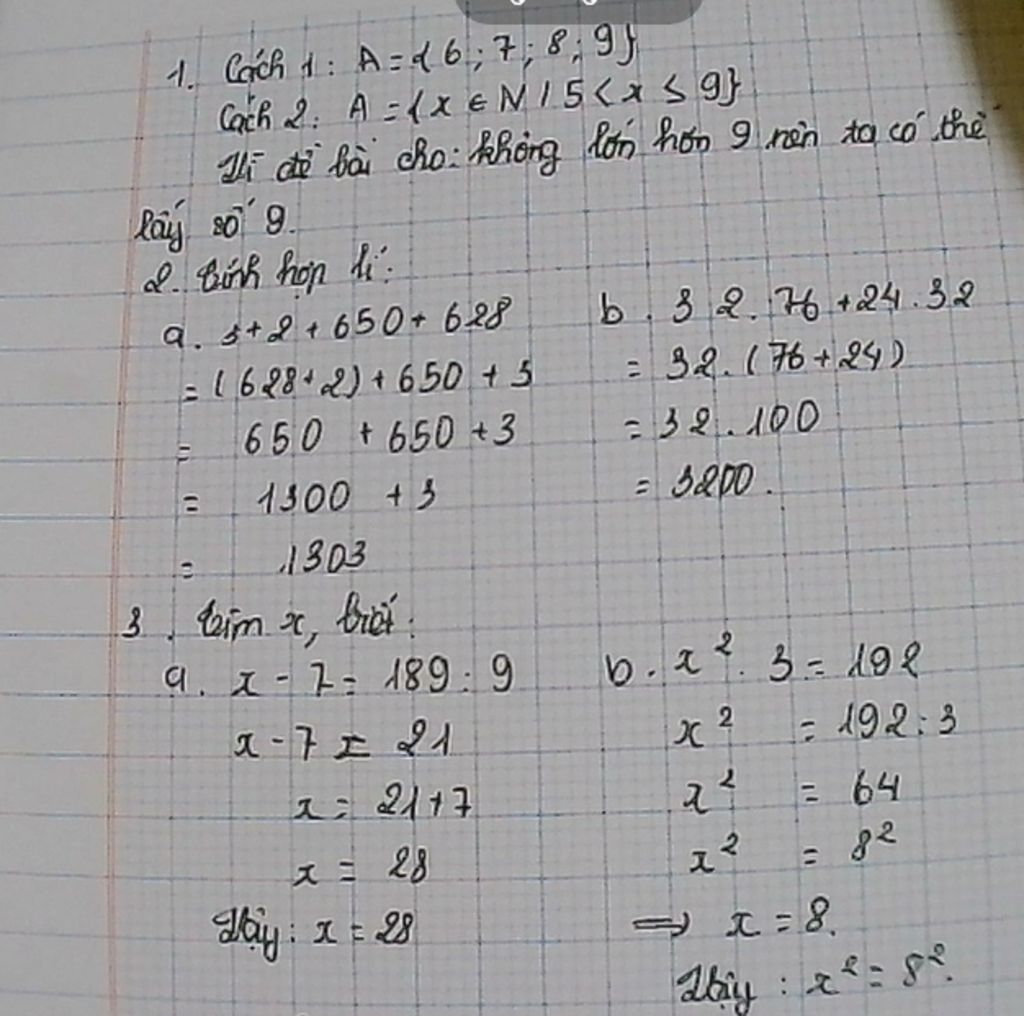 1. Cách 1: A = { 6 ; 7 ; 8 ; 9}
Cách 2: A = {x ∈ N / 5 < x ≤ 9}
Vì đề bài cho: không lớn hơn 9 nên ta có thể
lấy số 9.
2. Tính hợp lí:
a. 3 + 2 + 650 + 628
= (628 + 2) + 650 + 3
= 650 + 650 + 3
= 1300 + 3
= 1303
b. 32. 76 + 24. 32
= 32. (76 + 24)
= 32. 100
= 3200.
3. Tìm x, biết:
a. x - 7 = 189 : 9
x - 7 = 21
x = 21 + 7
x = 28
Vậy: x = 28
b. x². 3 = 192
x² = 192 : 3
x² = 64
x² = 8²
⟹ x = 8.
Vậy : x² = 8².